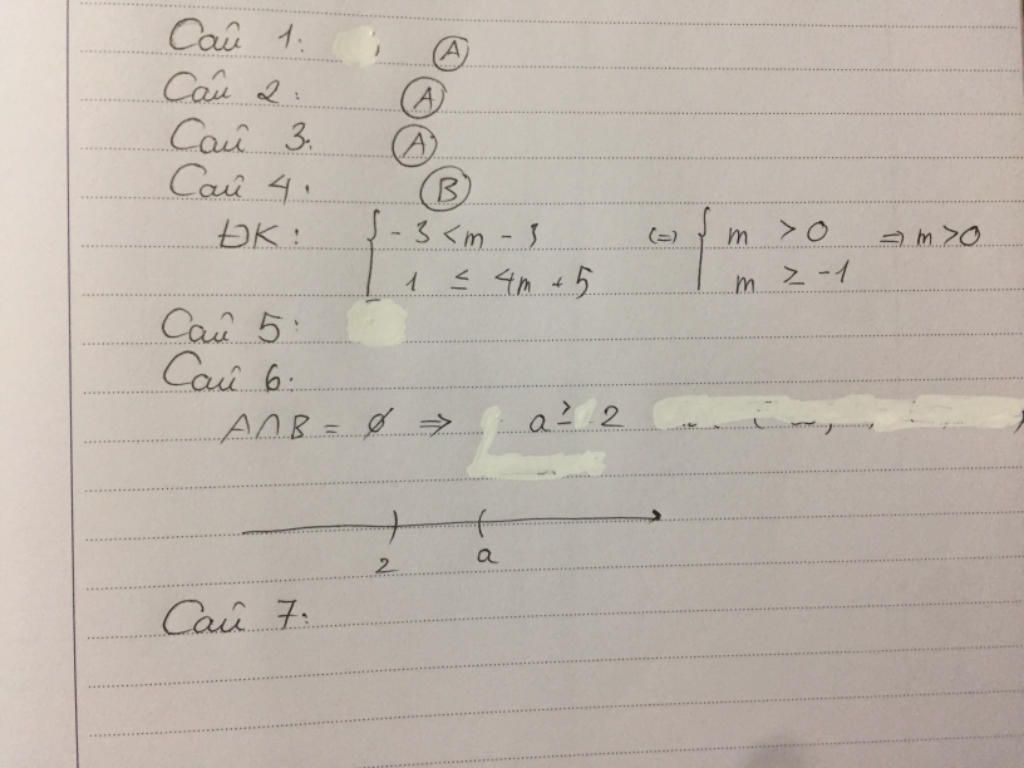 Câu 1: A
Câu 2: A
Câu 3: A
Câu 4: B
ĐK: { -3 < m - 3 (=) { m > 0 => m > 0
1 ≤ 4m + 5 m ≥ -1
Câu 5:
Câu 6:
A∩B = ∅ => a ≥ 2
2 a
Câu 7: